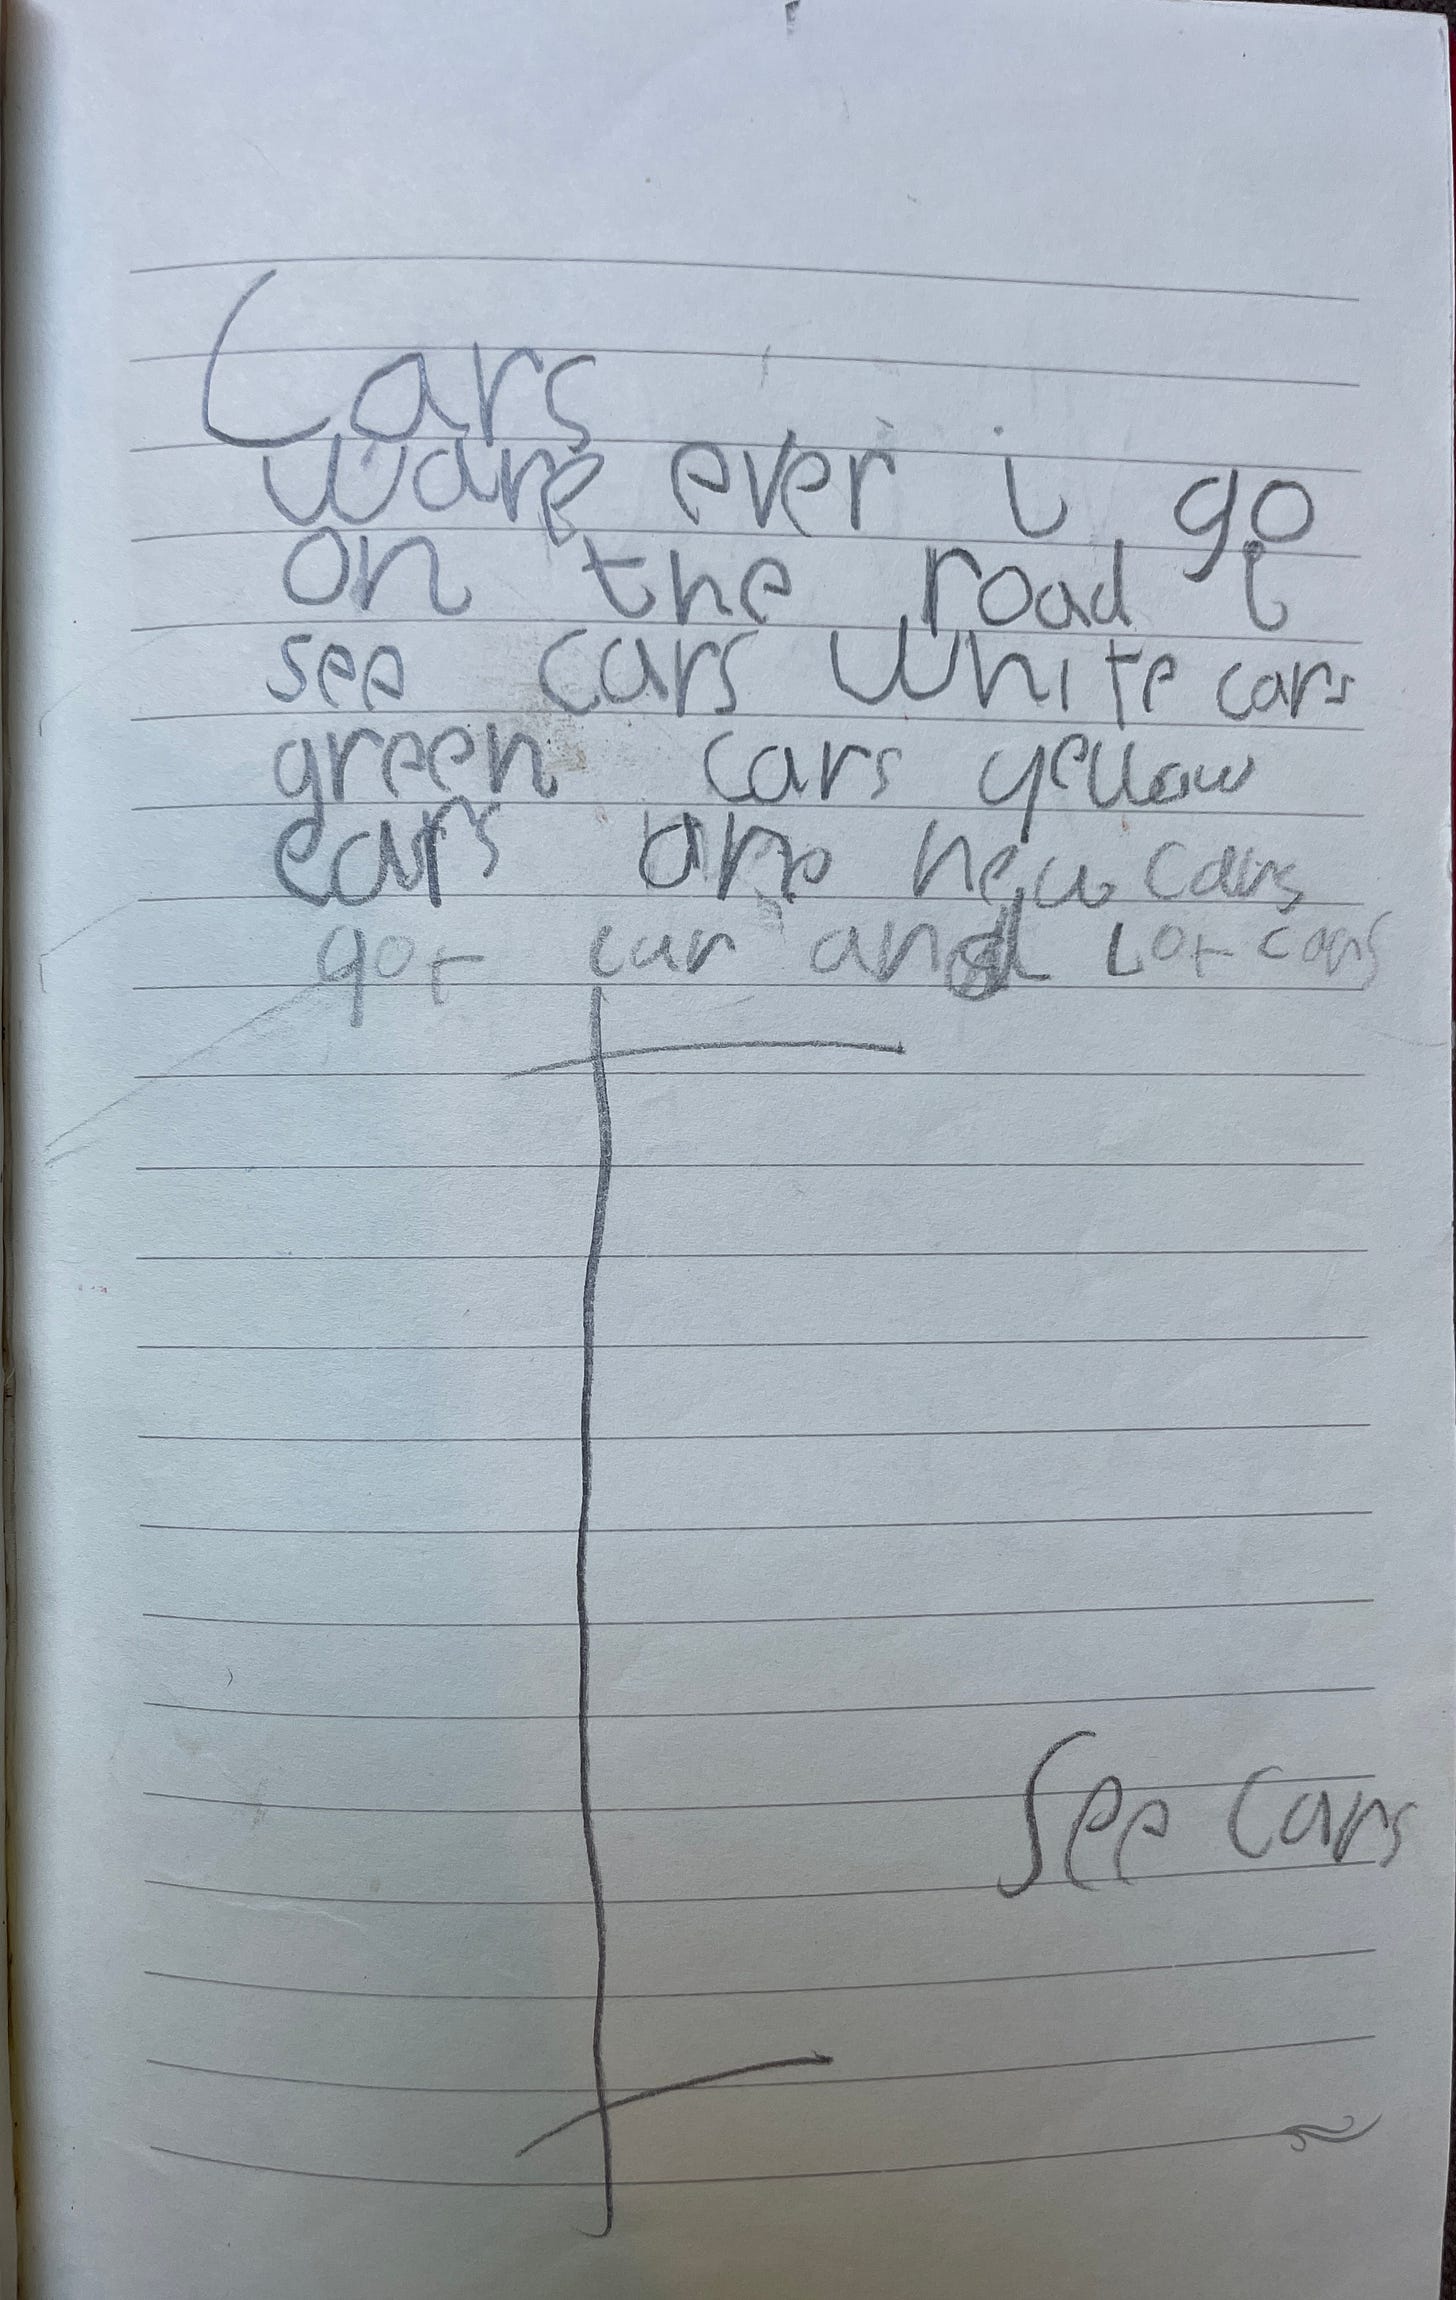 Cars
ware ever i go
on the road i
see cars white cars
green cars yellow
cars are new cars
got car and Lot cars
See cars